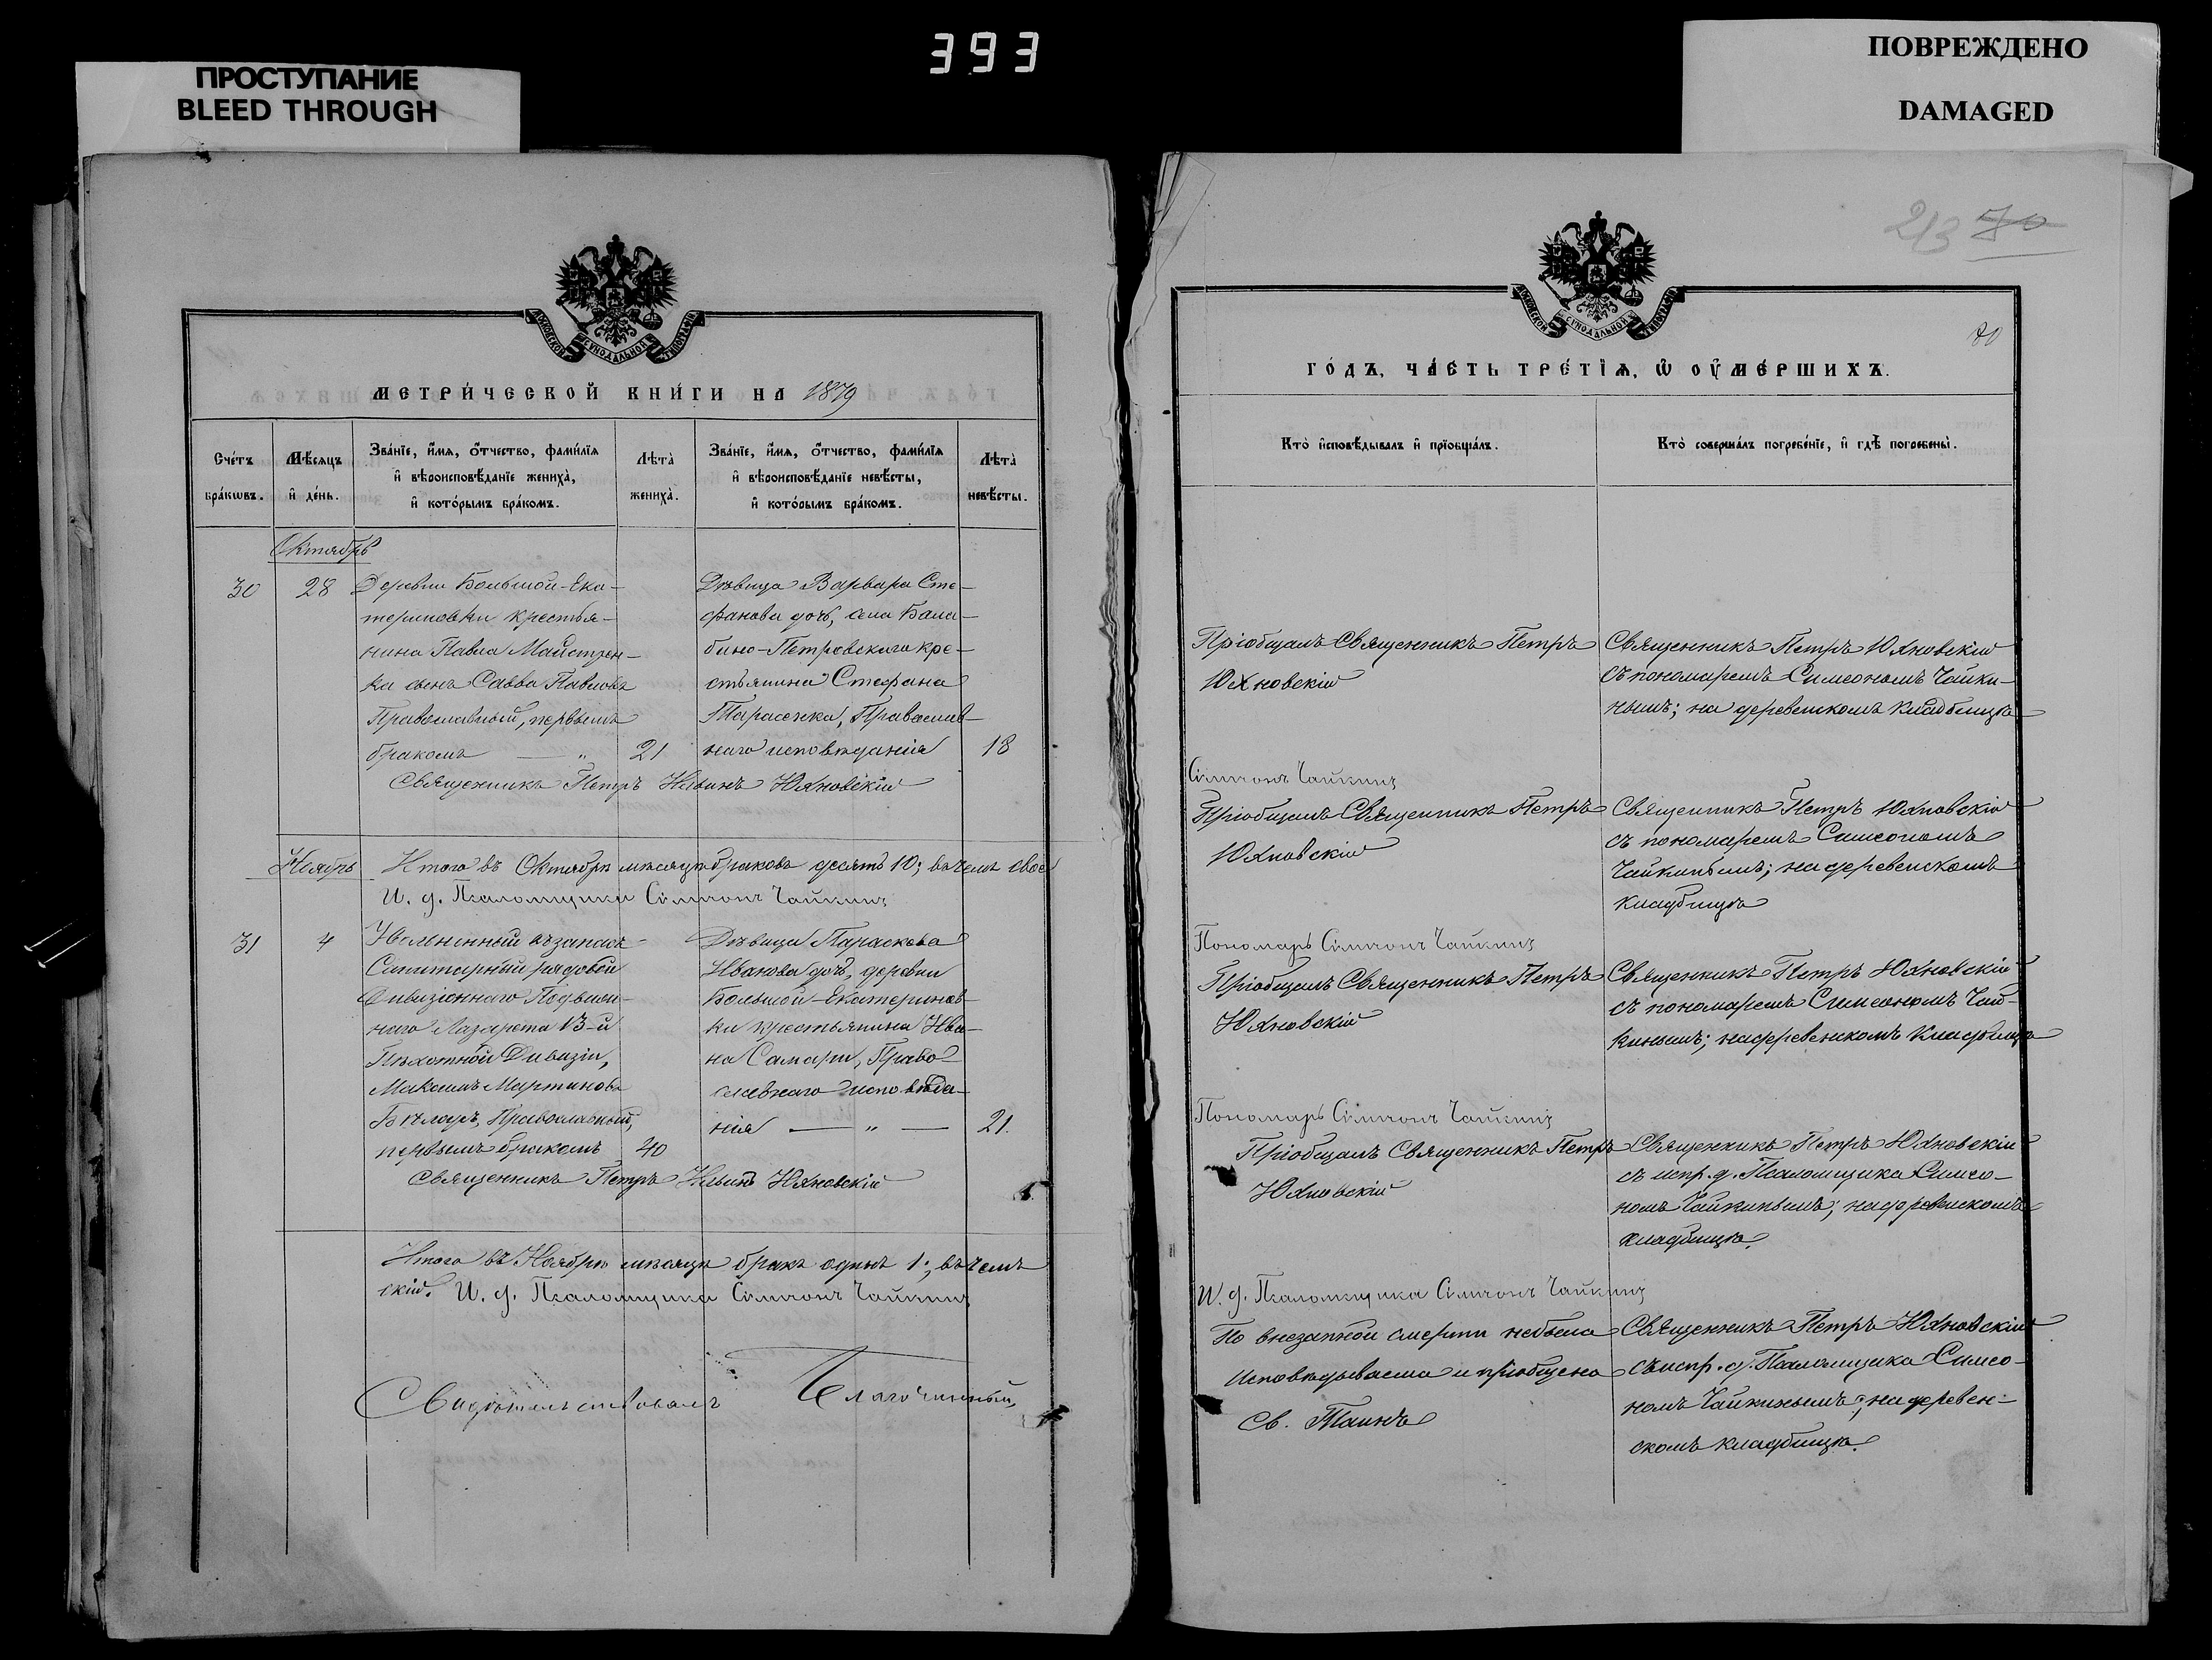 393
ПРОСТУПАНИЕ
BLEED THROUGH
ПОВРЕЖДЕНО
DAMAGED
МОСКОВСКОЙ СѴНОДАЛЬНОЙ ТИПОГРАФІИ
МЕТРИ́ЧЕСКОЙ КНИ́ГИ НА 1879
Сче́тъ бра́кѡвъ.
Мѣ́сѧцъ и҆ де́нь.
Зва́нїе, и҆́мѧ, ѻ҆́тчество, фами́лїѧ
и҆ вѣроисповѣ́данїе жениха̀,
и҆ кото́рымъ бра́комъ.
Лѣта̀ жениха̀.
Зва́нїе, и҆́мѧ, ѻ҆́тчество, фами́лїѧ
и҆ вѣроисповѣ́данїе невѣ́сты,
и҆ кото́рымъ бра́комъ.
Лѣта̀ невѣ́сты.
Октябрь
30
28
Деревни Большой-Ека-
териновки крестья-
нина Павла Майстрен-
ка сынъ Савва Павловъ
Православный, первымъ
бракомъ — „
21
Дѣвица Варвара Сте-
фанова дочь, села Бала-
бино-Петровскаго кре-
стьянина Стефана
Тарасенка, Православ-
наго исповѣданія
18
Священникъ Петръ Ильинъ Юхновскій
Ноябрь
Итого въ Октябрѣ мѣсяцѣ браковъ десять 10; въ чемъ свое
И. д. Псаломщика Сімеонъ Чайкинъ
31
4
Уволенный въ запасъ
Санитарный рядовой
Дивизіоннаго Подвиж-
наго Лазарета 13-й
Пѣхотной Дивизіи,
Максимъ Мартиновъ
Бѣларъ, Православный,
первымъ бракомъ
40
Дѣвица Параскева
Иванова дочь, деревни
Большой-Екатеринов-
ки крестьянина Ива-
на Самари, Право
славнаго исповѣда-
нія — „ —
21.
Священникъ Петръ Ильинъ Юхновскій
Итого въ Ноябрѣ мѣсяцѣ бракъ одинъ 1; въ чемъ
скій. И. д. Псаломщика Сімеонъ Чайкинъ
Свидѣтельствовалъ Благочинный
213 70
70
МОСКОВСКОЙ СѴНОДАЛЬНОЙ ТИПОГРАФІИ
ГО́ДЪ, ЧА́СТЬ ТРЕ́ТЇѦ, Ѡ҆ ОУ҆МЕ́РШИХЪ.
Кто̀ и҆сповѣ́дывалъ и҆ прїобща́лъ.
Кто̀ соверша́лъ погребе́нїе, и҆ гдѣ̀ погребены̀.
Пріобщалъ Священникъ Петръ
Юхновскій
Священникъ Петръ Юхновскій
съ пономаремъ Симеономъ Чайки-
нымъ; на деревенскомъ кладбищѣ
Сімеонъ Чайкинъ
Пріобщалъ Священникъ Петръ
Юхновскій
Священникъ Петръ Юхновскій
съ пономаремъ Симеономъ
Чайкинымъ; на деревенскомъ
кладбищѣ
Пономарь Сімеонъ Чайкинъ
Пріобщалъ Священникъ Петръ
Юхновскій
Священникъ Петръ Юхновскій
съ пономаремъ Симеономъ Чай-
кинымъ; на деревенскомъ кладбищѣ
Пономарь Сімеонъ Чайкинъ
Пріобщалъ Священникъ Петръ
Юхновскій
Священникъ Петръ Юхновскій
съ испр. д. Псаломщика Симео-
номъ Чайкинымъ; на деревенскомъ
кладбищѣ.
И. д. Псаломщика Сімеонъ Чайкинъ
По внезапной смерти небыла
исповѣдываема и пріобщена
Св. Таинъ
Священникъ Петръ Юхновскій
съ испр. д. Псаломщика Симео-
номъ Чайкинымъ; на деревен-
скомъ кладбищѣ.